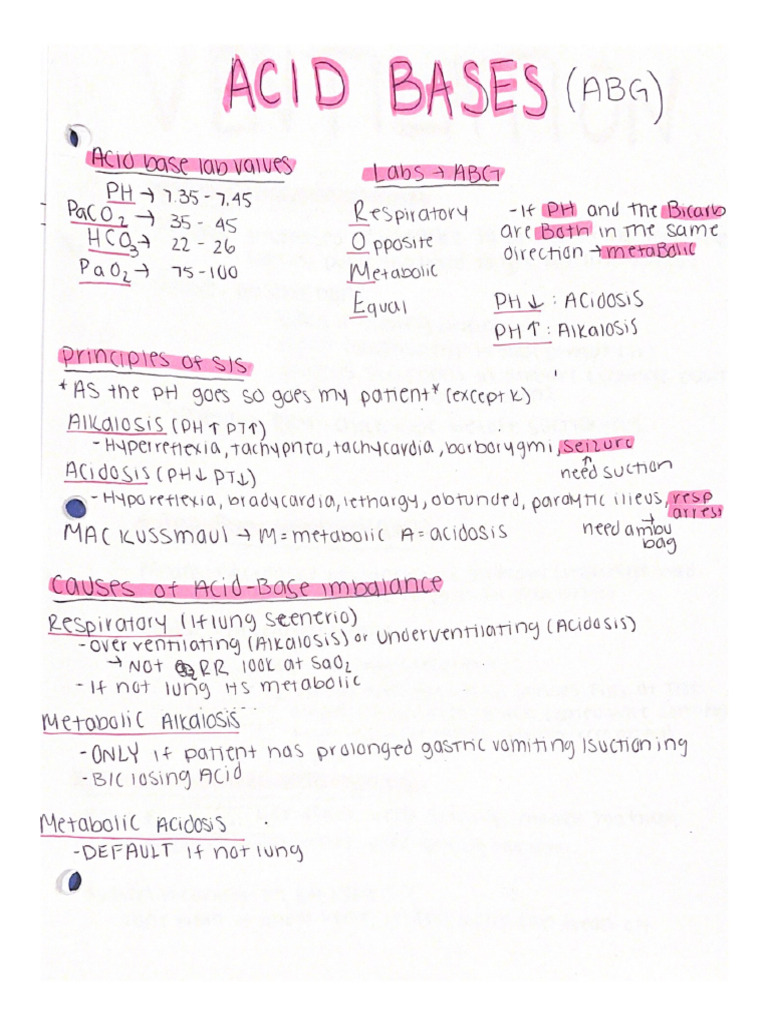 ACID BASES (ABG)
Acid base lab values
PH → 7.35 - 7.45
PaCO2 → 35 - 45
HCO3 → 22 - 26
PaO2 → 75 - 100
Labs → ABG
Respiratory
Opposite
Metabolic
Equal
- If PH and the Bicarb
are Both in the same
direction → metaBolic
PH ↓ : ACIDOSIS
PH ↑ : Alkalosis
Principles of S/S
*AS the PH goes so goes my patient* (except K)
Alkalosis (PH↑ PT↑)
- Hyperreflexia, tachypnea, tachycardia, borborygmi, seizure
↑
need suction
Acidosis (PH↓ PT↓)
- Hyporeflexia, bradycardia, lethargy, obtunded, paralytic illeus, resp
arrest
→
need ambu
bag
MAC Kussmaul → M = metabolic A = acidosis
Causes of Acid-Base imbalance
Respiratory (If lung Scenerio)
- over ventilating (Alkalosis) or Underventilating (Acidosis)
→ NOT RR look at SaO2
- If not lung its metabolic
Metabolic Alkalosis
- ONLY if patient has prolonged gastric vomiting / suctioning
- B/C losing Acid
Metabolic Acidosis
- DEFAULT if not lung